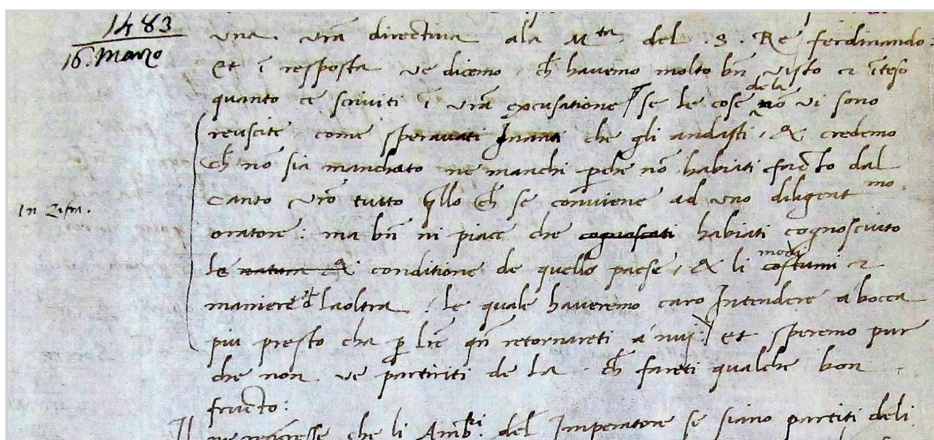 1483
16. Marzo
una vra directiva ala Mta del .S. Re ferdinando:
et i resposta ve dicemo ch havemo molto bn visto et iteso
quanto ce scriviti i vra excusatione se le cose dela nō vi sono
reuscite come speravati Inanti che gli andasti, & credemo
ch nō sia manchato ne manchi pche nō habiati facto dal
canto vro tutto qllo ch se conviene ad uno diligentmo
In Zifra.
oratore: ma bn ni piace che cognoscati habiati cognosciuto
le natura & conditione de quello paese, & li costumi modi et
maniere d laoltra. le quale haveremo caro Intendere a bocca
piu presto cha p lre qn retornareti a nuj: et speremo pur
che non ve partiriti de la ch fareti qualche bon
fructo:
che li Ambri del Imperatore se siano partiti deli